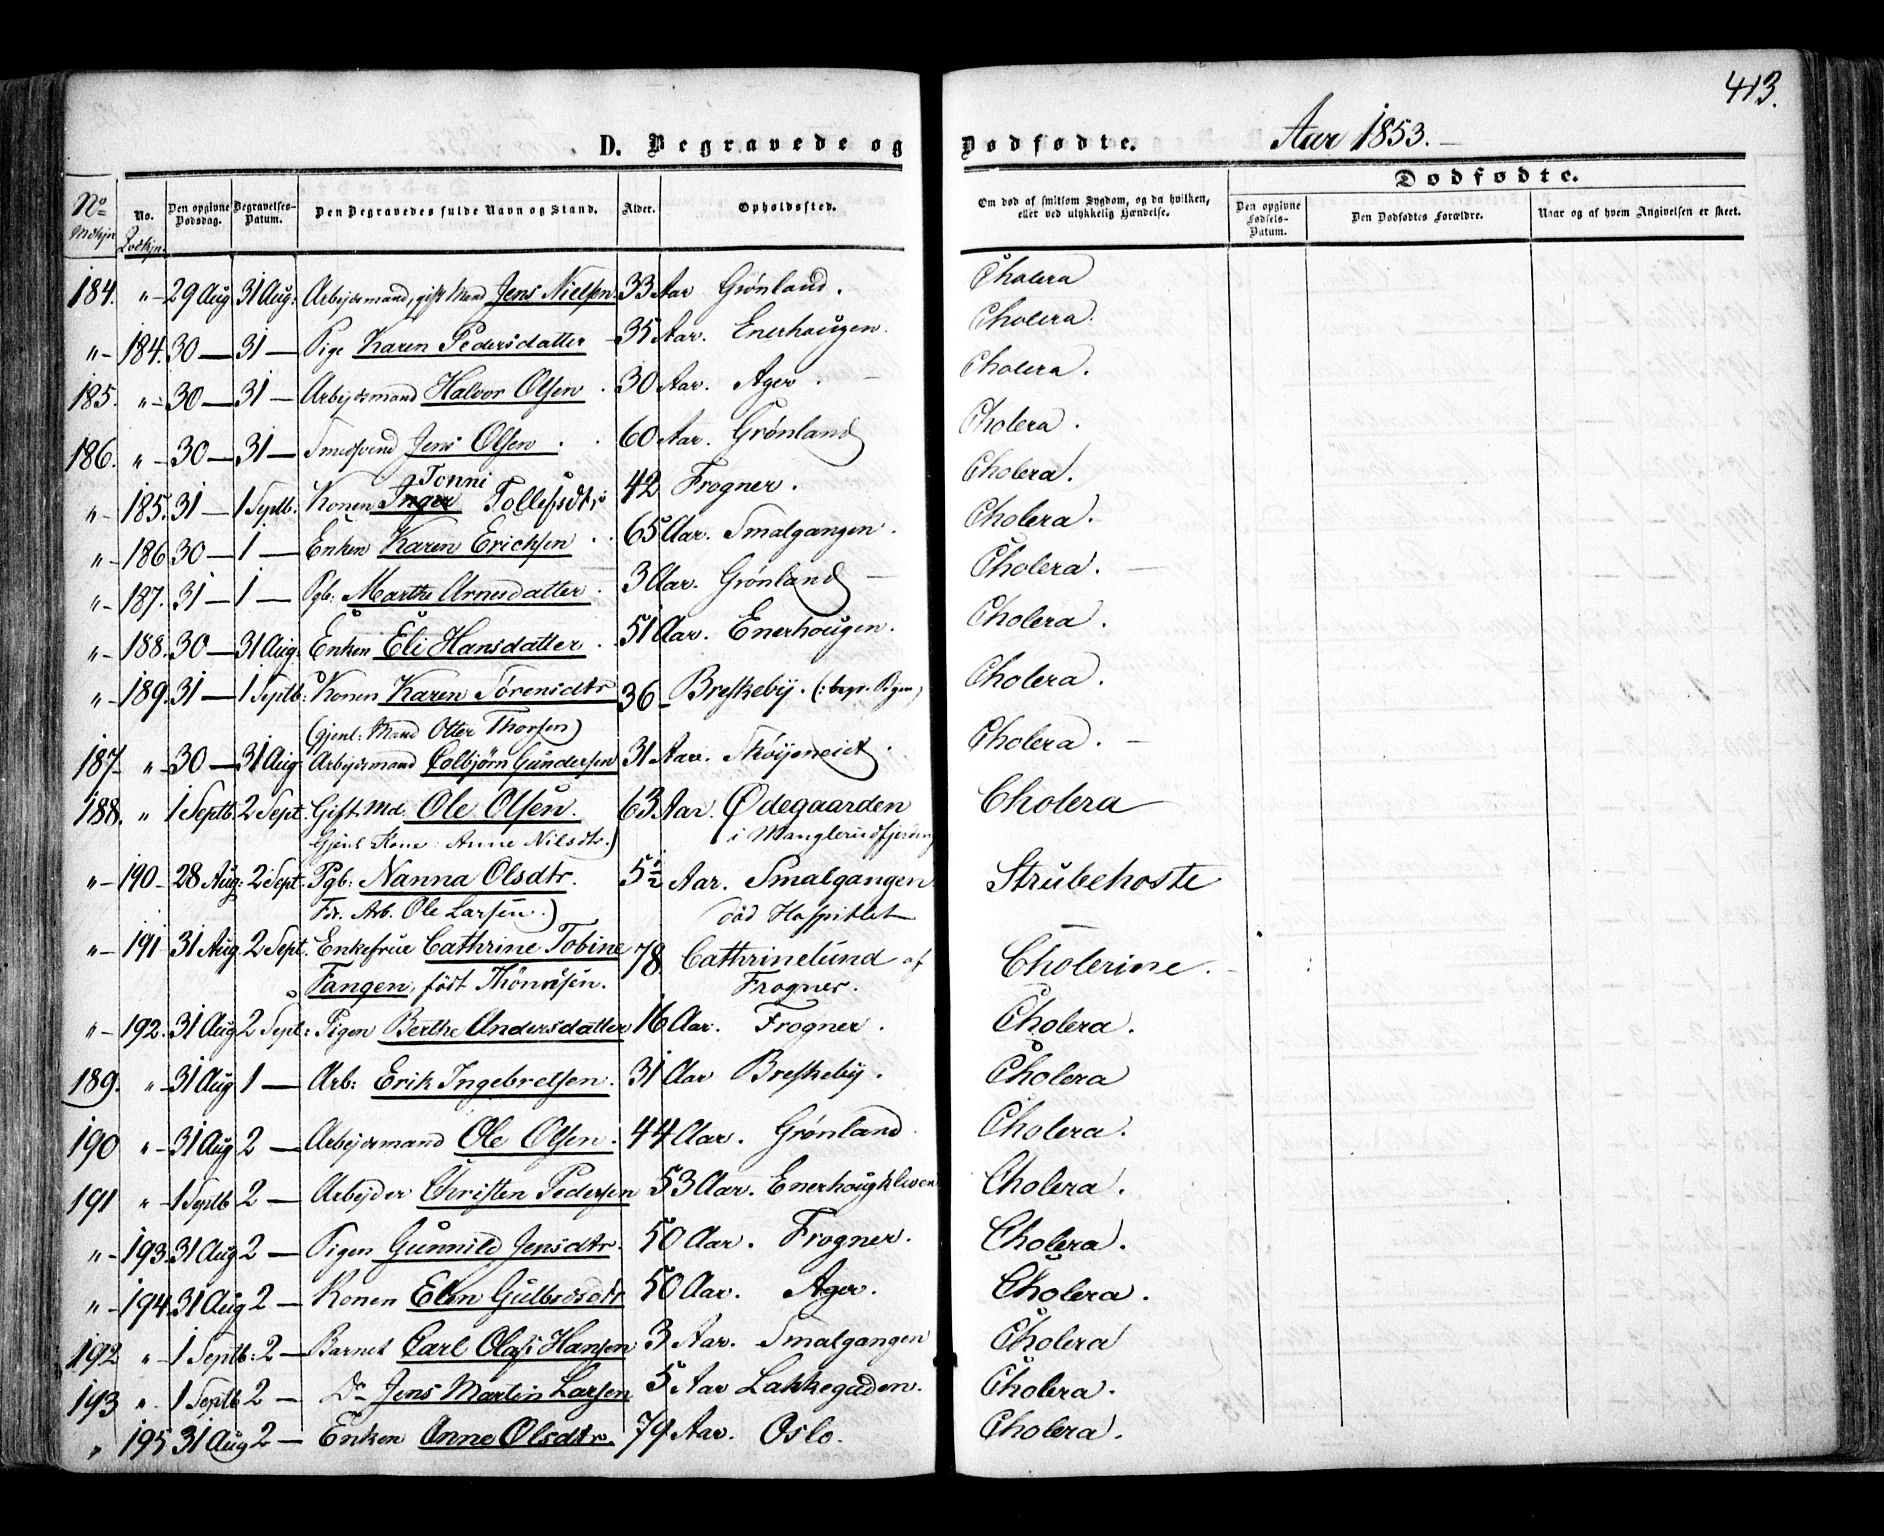 413.
D. Begravede og Dødfødte. Aar 1853.—
Dødfødte.
No Mdkjn No. Qvdkjn. Den opgivne Dødsdag. Begravelses-Datum. Den Begravedes fulde Navn og Stand. Alder. Opholdssted. Om død af smitsom Sygdom, og da hvilken, eller ved ulykkelig Hændelse. Den opgivne Fødsels-Datum. Den Dødfødtes Forældre. Naar og af hvem Angivelsen er skeet.
184. „ — 29 Aug 31 Aug: Arbejdsmand, gift Mand Jens Nielsen. 33 Aar Grønland. Cholera
„ — 184. 30 — 31 — Pige Karen Pedersdatter — 35 Aar. Enerhaugen. Cholera.
185. „ — 30 — 31 — Arbejdsmand Halvor Olsen . 30 Aar. Ager. — Cholera.
186. „ — 30 — 31 — Smedsvend Jens Olsen . . 60 Aar. Grønland Cholera.
Tonni
„ — 185. 31 — 1 Septb. Konen Inger Tollefsdtr 42 Frogner. Cholera.
„ — 186 30 — 1 — Enken Karen Ericksen . . 65 Aar. Smalgangen. Cholera.
„ — 187. 31 — 1 — Pgb: Marthe Arnesdatter . 3 Aar. Grønland — Cholera. —
„ — 188. 30 — 31 Aug: Enken Eli Hansdatter . 51 Aar. Enerhougen. Cholera.
„ — 189. 31 — 1 Septb: Konen Karen Sørensdtr 36 — Breskeby. (: begr. Pigen) Cholera.
(gjenl: Mand Otter Thorsen)
187 „ — 30 — 31 Aug: Arbejdsmand Colbjørn Gundersen 31 Aar. Skøijeneiet . Cholera. —
188. „ 1 Septb. 2 Sept. Gift Md. Ole Olsen. 63 Aar. Ødegaarden Cholera
Gjenl. Kone: Anne Nilsdtr.) i Manglerudfjerding
„ — 190 — 28 Aug: 2 Sept. Pgb: Nanna Olsdtr. 5 1/2 Aar. Smalgangen Strubehoste
Fr. Arb. Ole Larsen.) død Hospitlet —
„ — 191 31 Aug. 2 Sept. Enkefrue Cathrine Tobine 78 Cathrinelund af Cholerine.
Fangen, født Thönnesen. Frogner.
„ — 192. 31 Aug 2 Sept: Pigen Berthe Andersdatter 16 Aar. Frogner. Cholera.
189. „ — 31 Aug 1 — Arb: Erik Ingebretsen. 31 Aar Breskeby. Cholera
190 „ — 31 Aug 2 — Arbejdsmand Ole Olsen. 44 Aar. Grønland. Cholera.
191 „ — 1 Septb 2 — Arbejder Christen Pedersen 53 Aar. Enerhougkleven Cholera.
„ — 193. 31 Aug 2 — Pigen Gunnild Jensdtr. 50 Aar. Frogner. Cholera.
„ — 194. 31 Aug 2 — Konen Elen Gulbrdsdtr 50 Aar. Ager. Cholera.
192 „ — 1 Septb: 2 — Barnet Carl Olaf Hansen 3 Aar. Smalgangen Cholera
193 „ 1 Septb 2 — Do Jens Martin Larsen 5 Aar Lakkegaden. Cholera.
„ 195 31 Aug 2 — Enken Anne Olsdtr. 79 Aar. Oslo. Cholera.